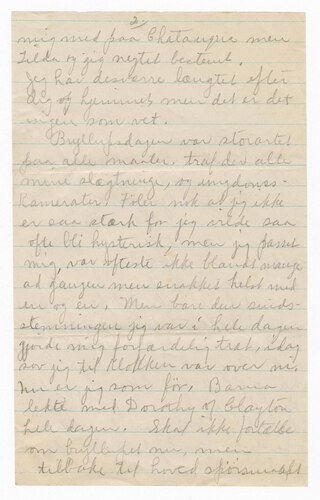 2/
mig med paa Chatauqua men
Tilda og jeg negtet bestemt.
Jeg har desverre længtet efter
dig og hjemmet men det er det
ingen som vet.
Bryllupsdagen var storartet
paa alle maater. traf der alle
mine slægtninge, og ungdoms-
kamerater. Föler nok at jeg ikke
er saa stærk for jeg vilde saa
ofte bli hysterisk, men jeg passet
mig, var ofteste ikke blandt mange
ad gangen men snakket helst med
en og en. Men bare den sinds-
stemningen jeg var i hele dagen
gjorde mig forfærdelig træt, idag
sov jeg til klokken var over ni.
Nu er jeg som för. Barna
lekte med Dorothy og Clayton
hele dagen. Skal ikke fortælle
om bryllupet nu, men
tilbake til hoved spörsmaalet